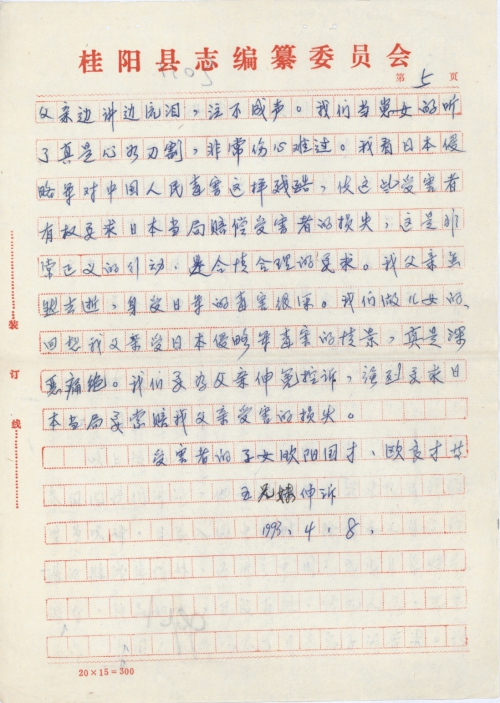 桂阳县志编纂委员会
第5页
父亲边讲边流泪，泣不成声。我们当儿女的听
了真是心如刀割，非常伤心难过。我看日本侵
略军对中国人民毒害这样残酷，使这些受害者
有权要求日本当局赔偿受害者的损失，这是非
常正义的行动，是合情合理的要求。我父亲虽
然去逝，身受日军的毒害很深。我们做儿女的，
回想我父亲受日本侵略军毒害的情景，真是深
恶痛绝。我们要为父亲伸冤控诉，强烈要求日
本当局要索赔我父亲受害的损失。
受害者的子女欧阳国才、欧良才廿
五兄妹伸诉
1993.4.8.
装
订
线
20×15=300